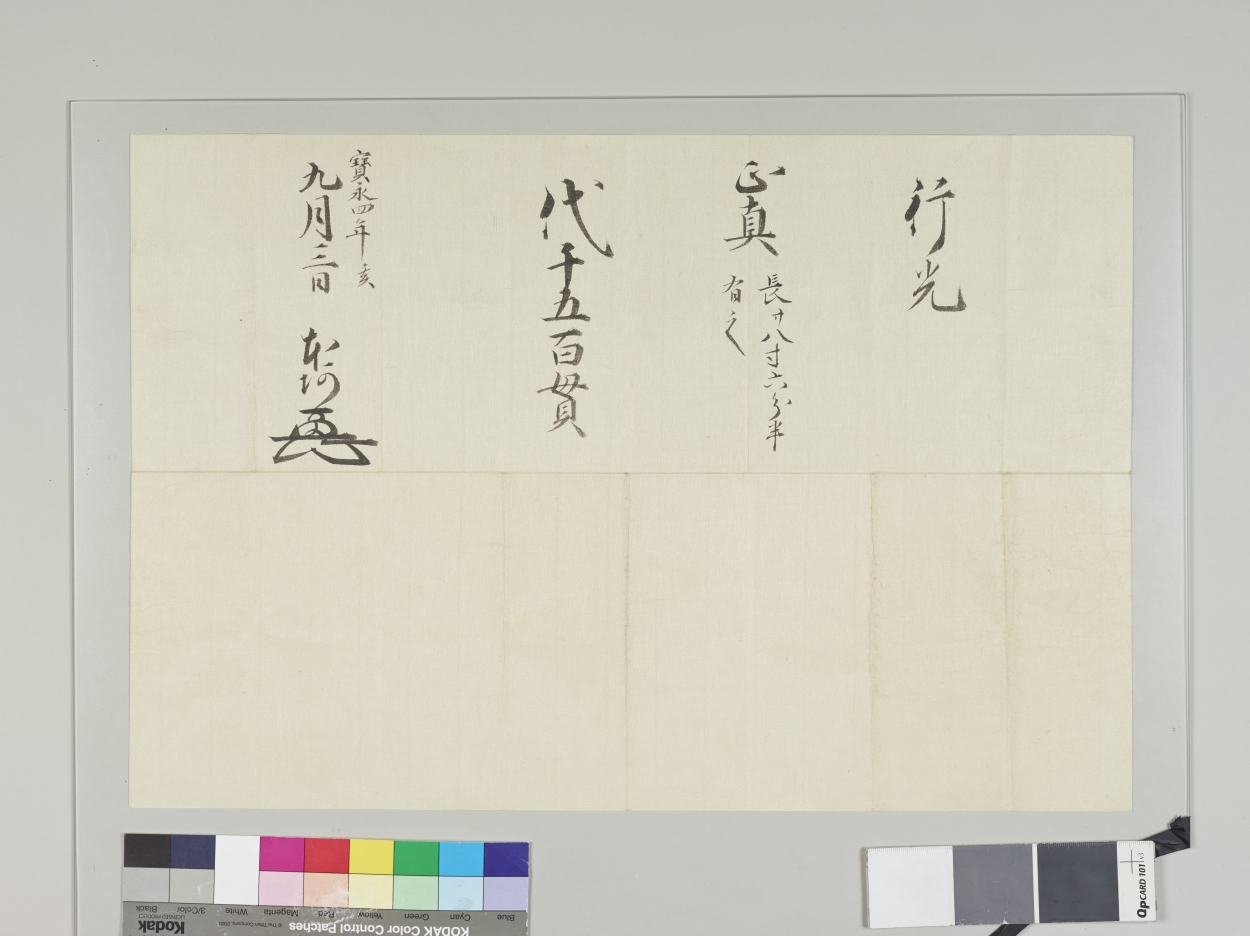 行光
正真
長廿八寸六分半
有之
代千五百貫
寶永四年亥
九月三日 本阿
Kodak
LICENSED PRODUCT
Black
3/Color
White
Magenta
Red
Yellow
Green
Cyan
Blue
KODAK Color Control Patches
QPCARD 101 v3